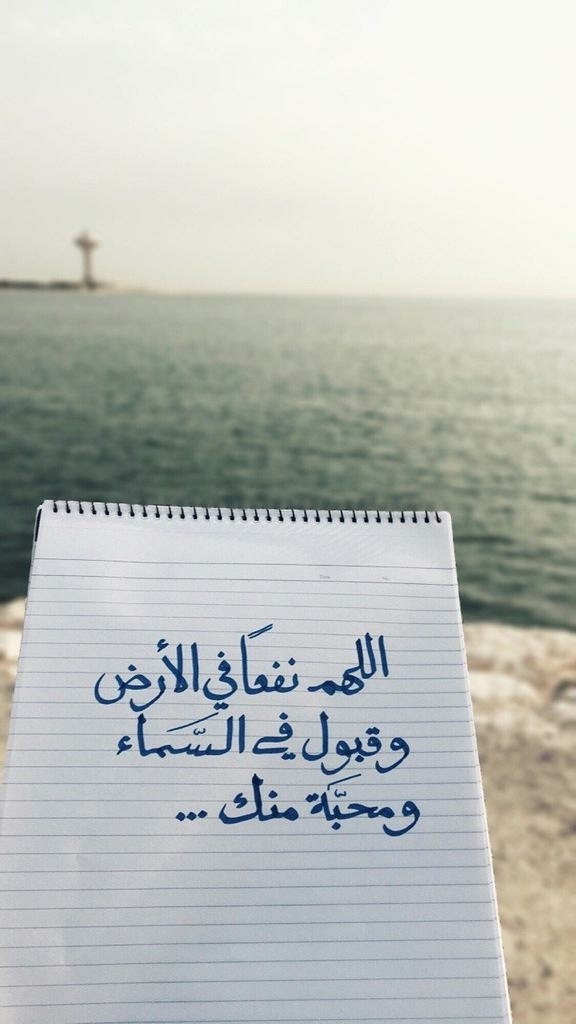 اللهم نفعاً في الأرض
وقبول في السَّماء
ومحبَّة منك ...